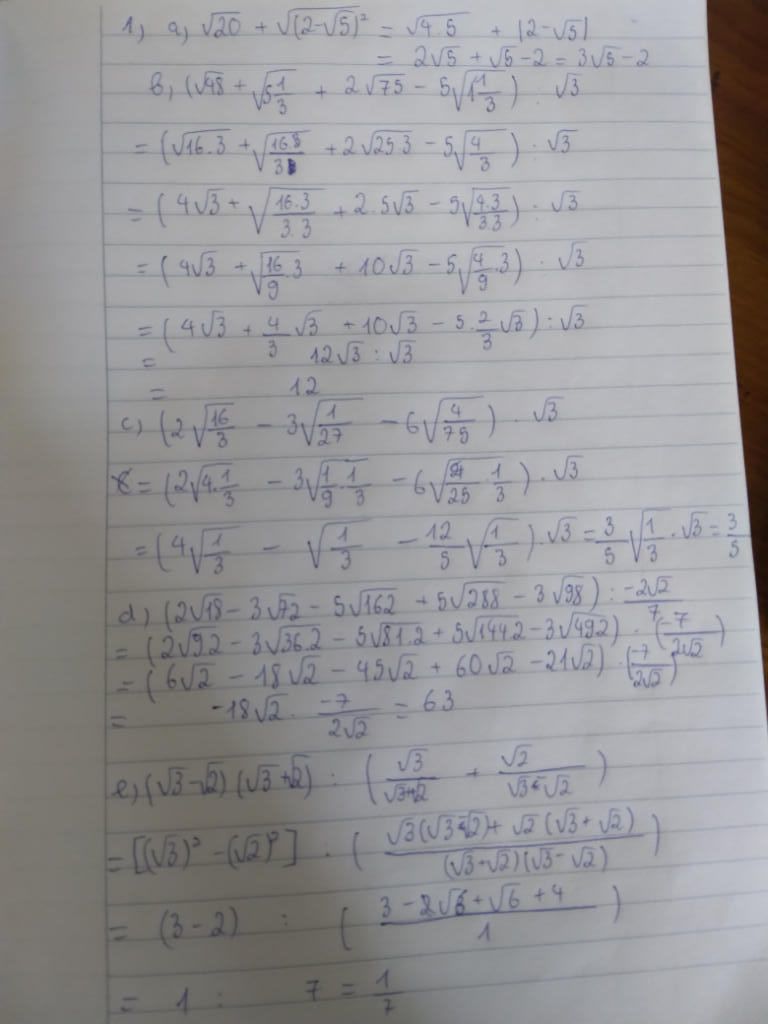 1, a, √20 + √(2-√5)² = √4.5 + |2-√5|
= 2√5 + √5-2 = 3√5-2
b, (√48 + √5 1/3 + 2√75 - 5√1 1/3) : √3
= (√16.3 + √16/3 + 2√25.3 - 5√4/3) : √3
= (4√3 + √16.3/3.3 + 2.5√3 - 5√4.3/3.3) : √3
= (4√3 + √16/9.3 + 10√3 - 5√4/9.3) : √3
= (4√3 + 4/3√3 + 10√3 - 5.2/3√3) : √3
= 12√3 : √3
= 12
c, (2√16/3 - 3√1/27 - 6√4/75) . √3
= (2√4.1/3 - 3√1/9.1/3 - 6√4/25.1/3) . √3
= (4√1/3 - √1/3 - 12/5√1/3) . √3 = 3/5√1/3 . √3 = 3/5
d, (2√18 - 3√72 - 5√162 + 5√288 - 3√98) : -2√2/7
= (2√9.2 - 3√36.2 - 5√81.2 + 5√144.2 - 3√49.2) . (-7/2√2)
= (6√2 - 18√2 - 45√2 + 60√2 - 21√2) . (-7/2√2)
= -18√2 . -7/2√2 = 63
e, (√3-√2)(√3+√2) : (√3/√3+√2 + √2/√3-√2)
= [(√3)² - (√2)²] : (√3(√3-√2) + √2(√3+√2)/(√3+√2)(√3-√2))
= (3-2) : (3-√6+√6+4/1)
= 1 : 7 = 1/7